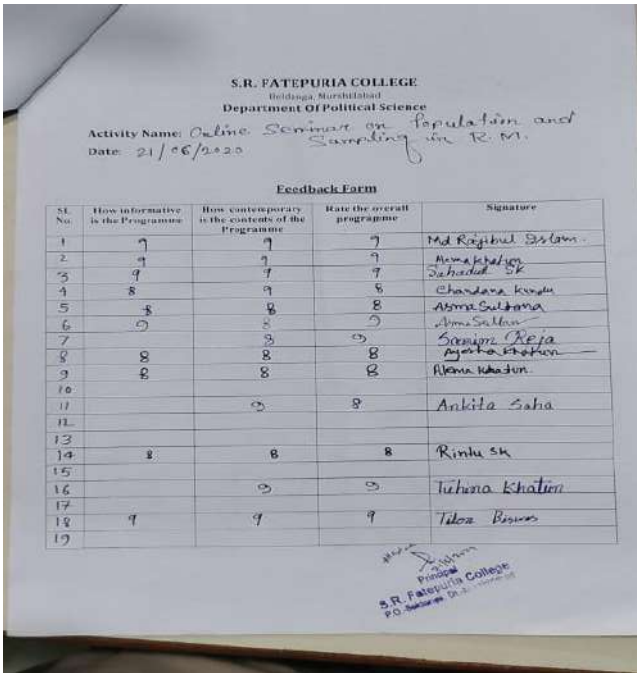 S.R. FATEPURIA COLLEGE
Beldanga, Murshidabad
Department Of Political Science
Activity Name: Online Seminar on Population and
Sampling in R.M.
Date: 21/06/2020
Feedback Form
SL No. How informative is the Programme How contemporary is the contents of the Programme Rate the overall programme Signature
1 9 9 9 Md Rajibul Islam.
2 9 9 9 Asma Khatun
3 9 9 9 Sahadul SK
4 8 9 8 Chandana Kundu
5 8 8 8 Asma Sultana
6 9 8 9
7 8 9 Samim Reja
8 8 8 8 Ayesha Khatun
9 8 8 8 Khatun.
10
11 9 8 Ankita Saha
12
13
14 8 8 8 Rintu SK
15
16 9 9 Tuhina Khatun
17
18 9 9 9 Biswas
19
Principal
S.R. Fatepuria College
P.O.